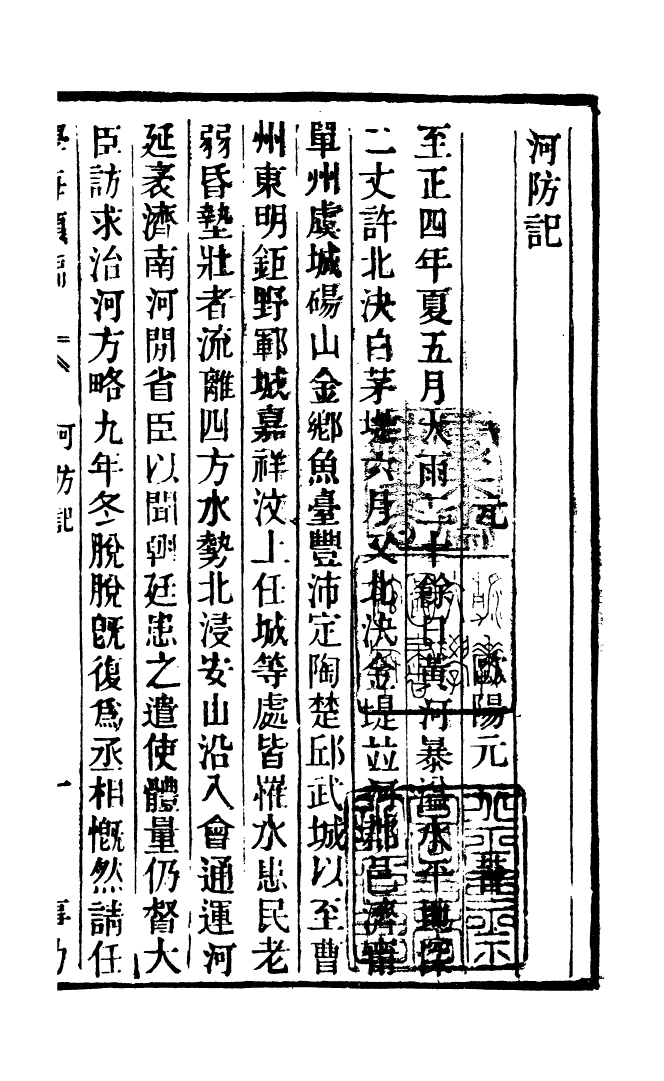 河防記
元 歐陽元 著
至正四年夏五月大雨二十餘日黃河暴溢水平地深
二丈許北決白茅堤六月又北決金堤並河郡邑濟寧
單州虞城碭山金鄉魚臺豐沛定陶楚邱武城以至曹
州東明鉅野鄆城嘉祥汶上任城等處皆罹水患民老
弱昏墊壯者流離四方水勢北浸安山沿入會通運河
延袤濟南河間省臣以聞朝廷患之遣使體量仍督大
臣訪求治河方略九年冬脫脫旣復爲丞相慨然請任
河防記 一